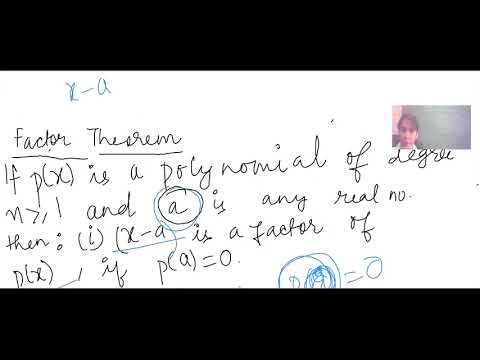 x-a
Factor Theorem
If p(x) is a polynomial of degree
n≥1 and a is any real no.
then: (i) (x-a) is a factor of
p(x), if p(a)=0.
=0